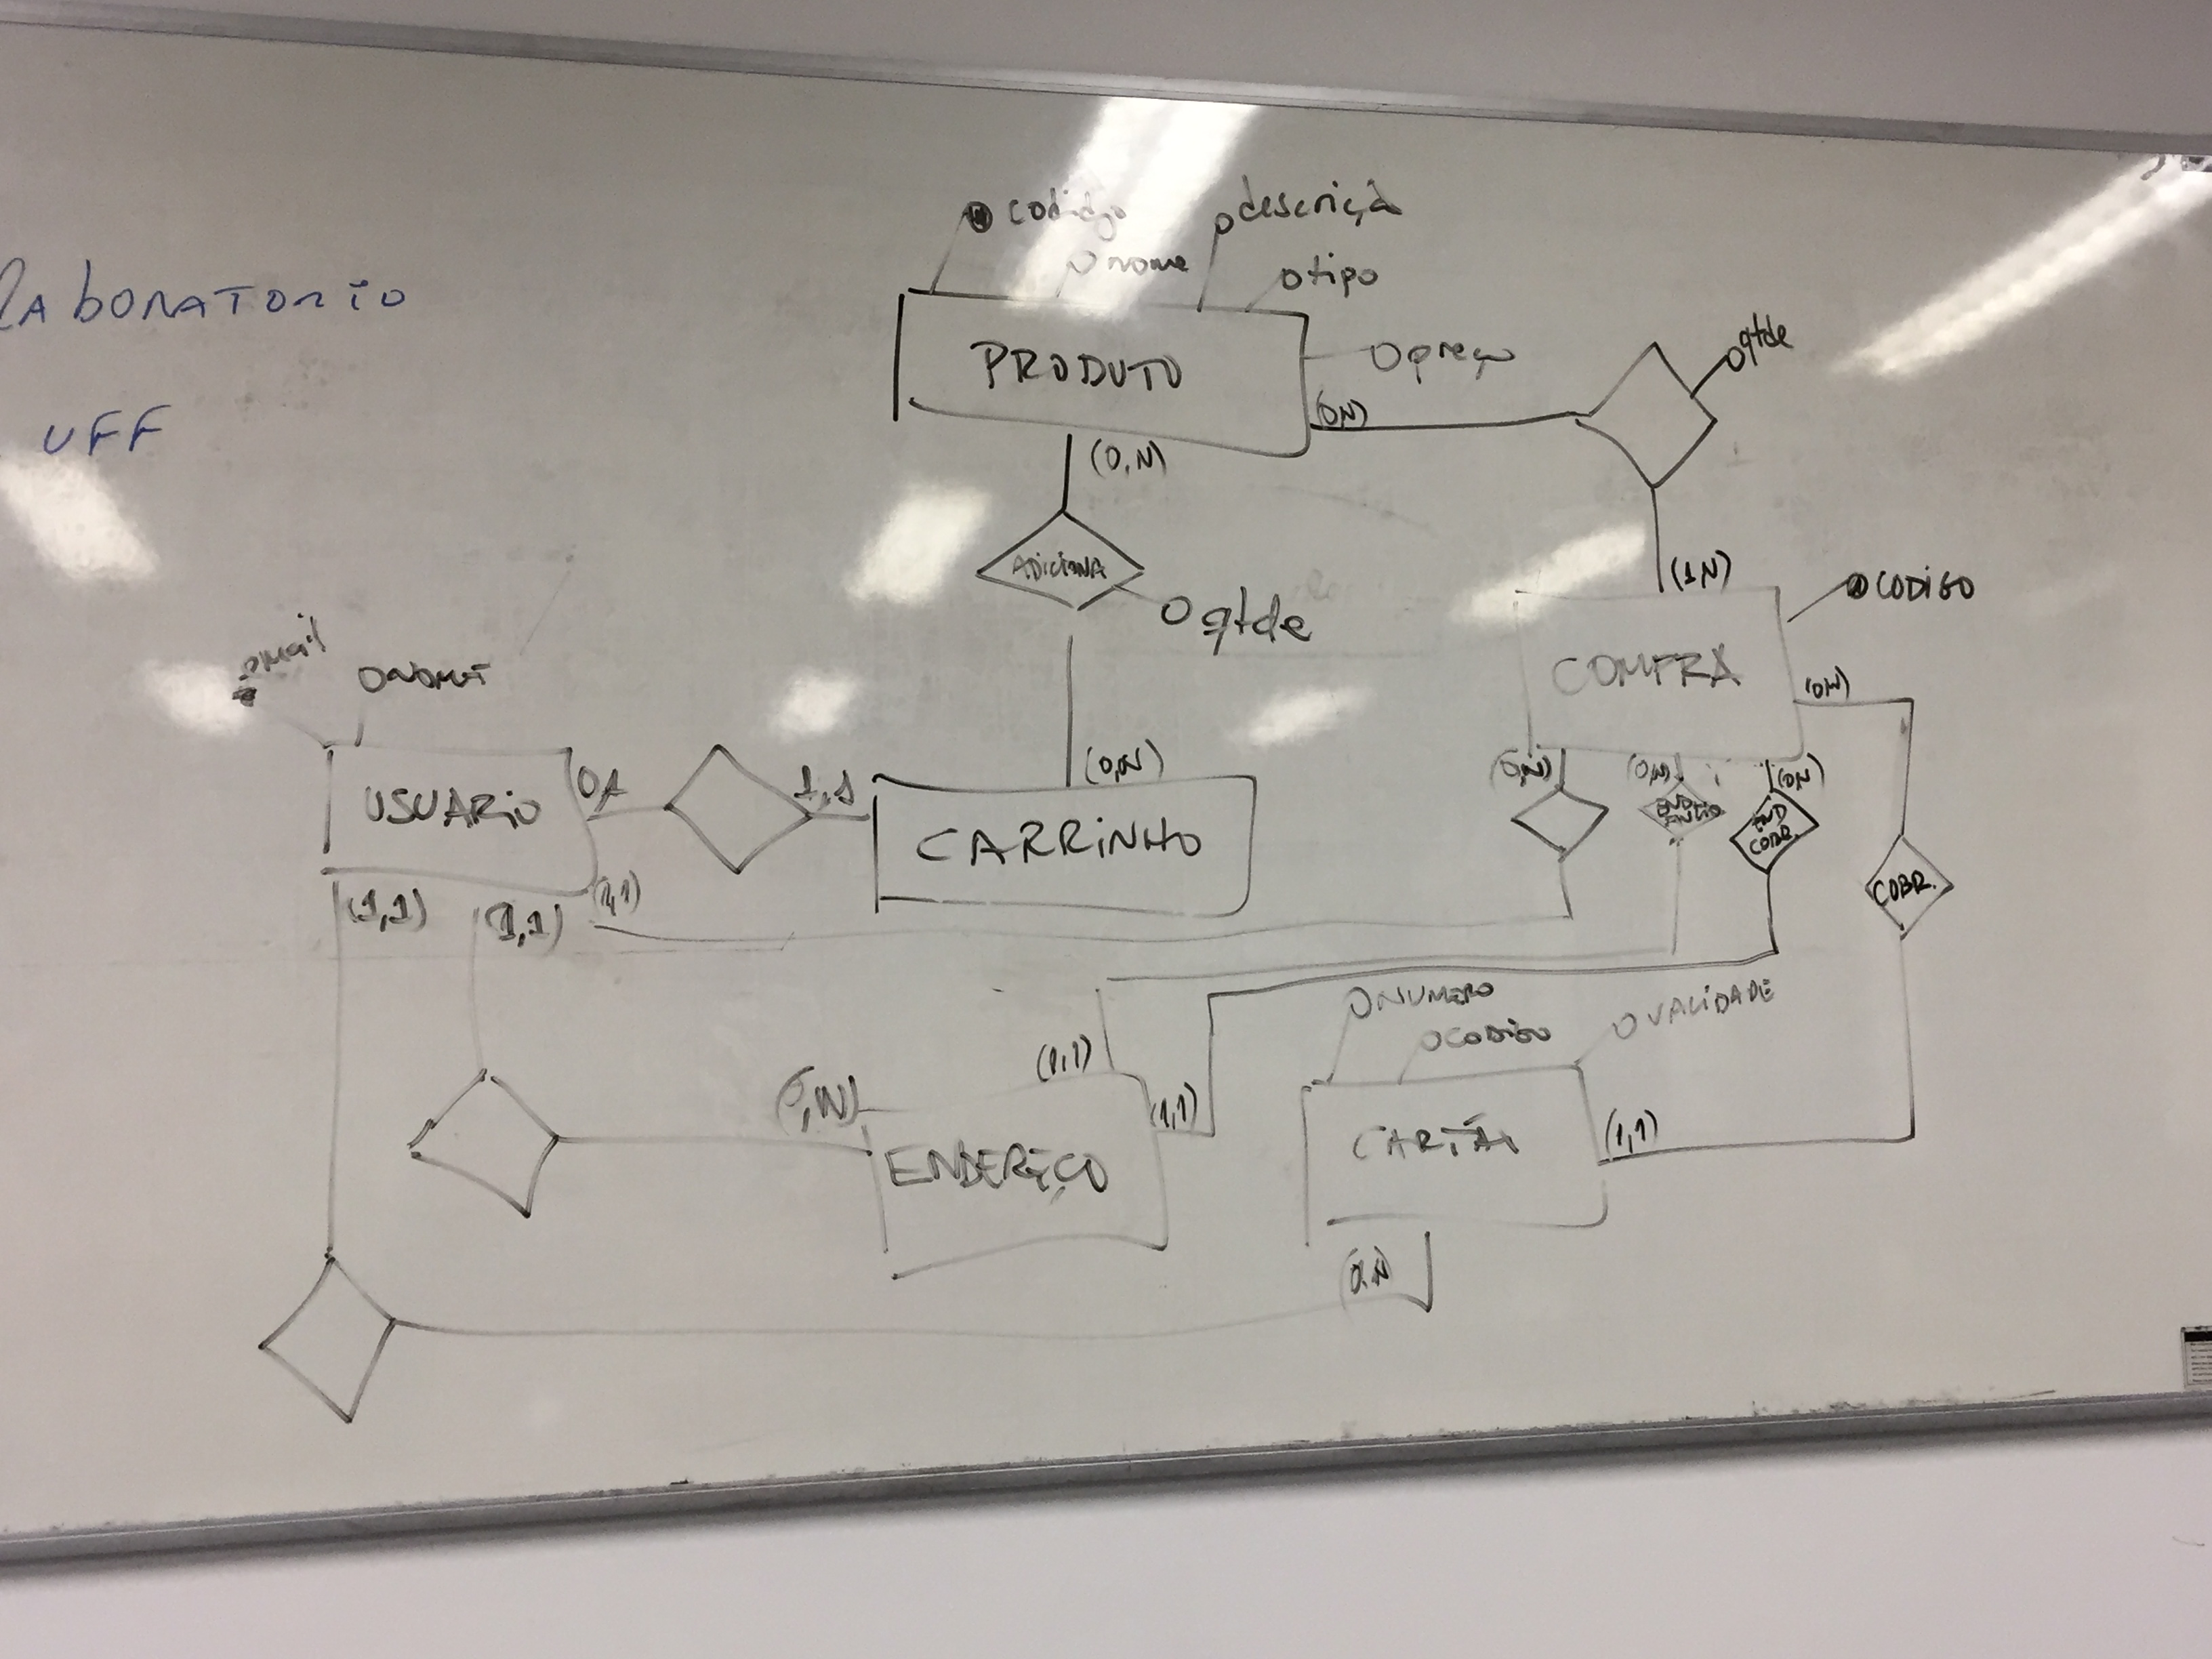 LABORATORIO
UFF
codigo
nome
descriçã
tipo
preço
PRODUTO
(0,N)
(0,N)
qtde
ADICIONA
qtde
(1,N)
CODIGO
COMPRA
(0,N)
email
NOME
USUARIO
0,1
1,1
(0,N)
CARRINHO
(0,N)
(0,N)
(0,N)
END
ENVIO
END
COBR.
COBR.
(1,1)
(1,1)
(1,1)
NUMERO
CODIGO
VALIDADE
(0,N)
(1,1)
(1,1)
ENDEREÇO
CARTÃO
(1,1)
(0,N)